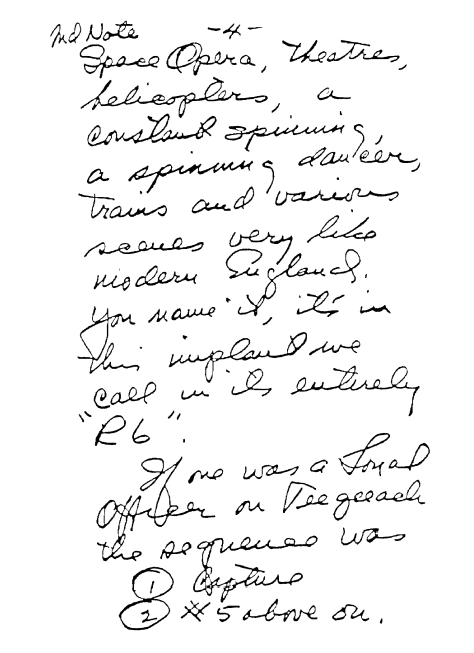 Md Note -4-
Space Opera, theatres,
helicopters, a
constant spinning,
a spinning dancer,
trains and various
scenes very like
modern England.
You name it, it's in
this implant we
call in its entirely
"R6".
If one was a Loyal
Officer on Teegeeach
the sequence was
① Capture
② #5 above on.